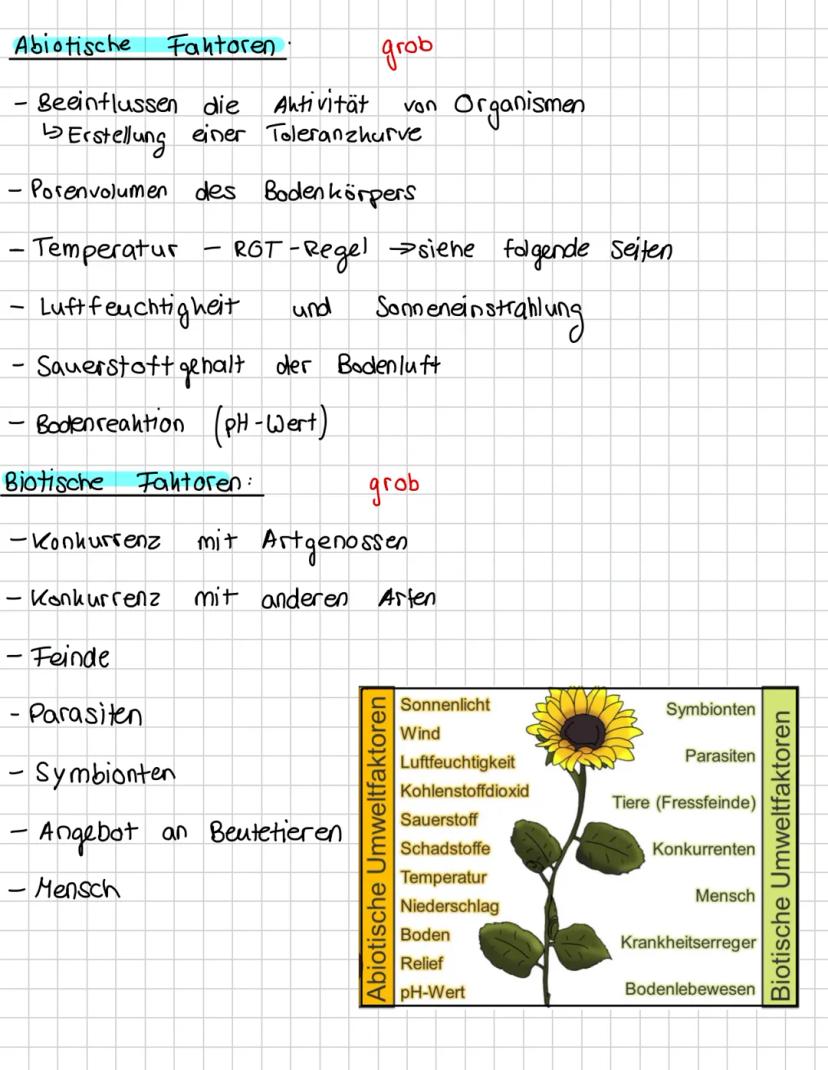 Abiotische Faktoren:
grob
- Beeinflussen die Aktivität von Organismen
↳ Erstellung einer Toleranzkurve
- Porenvolumen des Bodenkörpers
- Temperatur - RGT-Regel → siehe folgende Seiten
- Luftfeuchtigkeit und Sonneneinstrahlung
- Sauerstoffgehalt der Bodenluft
- Bodenreaktion (pH-Wert)
Biotische Faktoren:
grob
- Konkurrenz mit Artgenossen
- Konkurrenz mit anderen Arten
- Feinde
- Parasiten
- Symbionten
- Angebot an Beutetieren
- Mensch
Abiotische Umweltfaktoren
Sonnenlicht
Wind
Luftfeuchtigkeit
Kohlenstoffdioxid
Sauerstoff
Schadstoffe
Temperatur
Niederschlag
Boden
Relief
pH-Wert
Symbionten
Parasiten
Tiere (Fressfeinde)
Konkurrenten
Mensch
Krankheitserreger
Bodenlebewesen
Biotische Umweltfaktoren